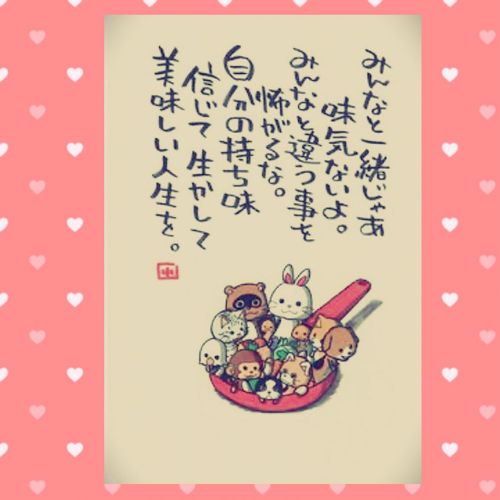 みんなと一緒じゃあ
味気ないよ。
みんなと違う事を
怖がるな。
自分の持ち味
信じて生かして
美味しい人生を。